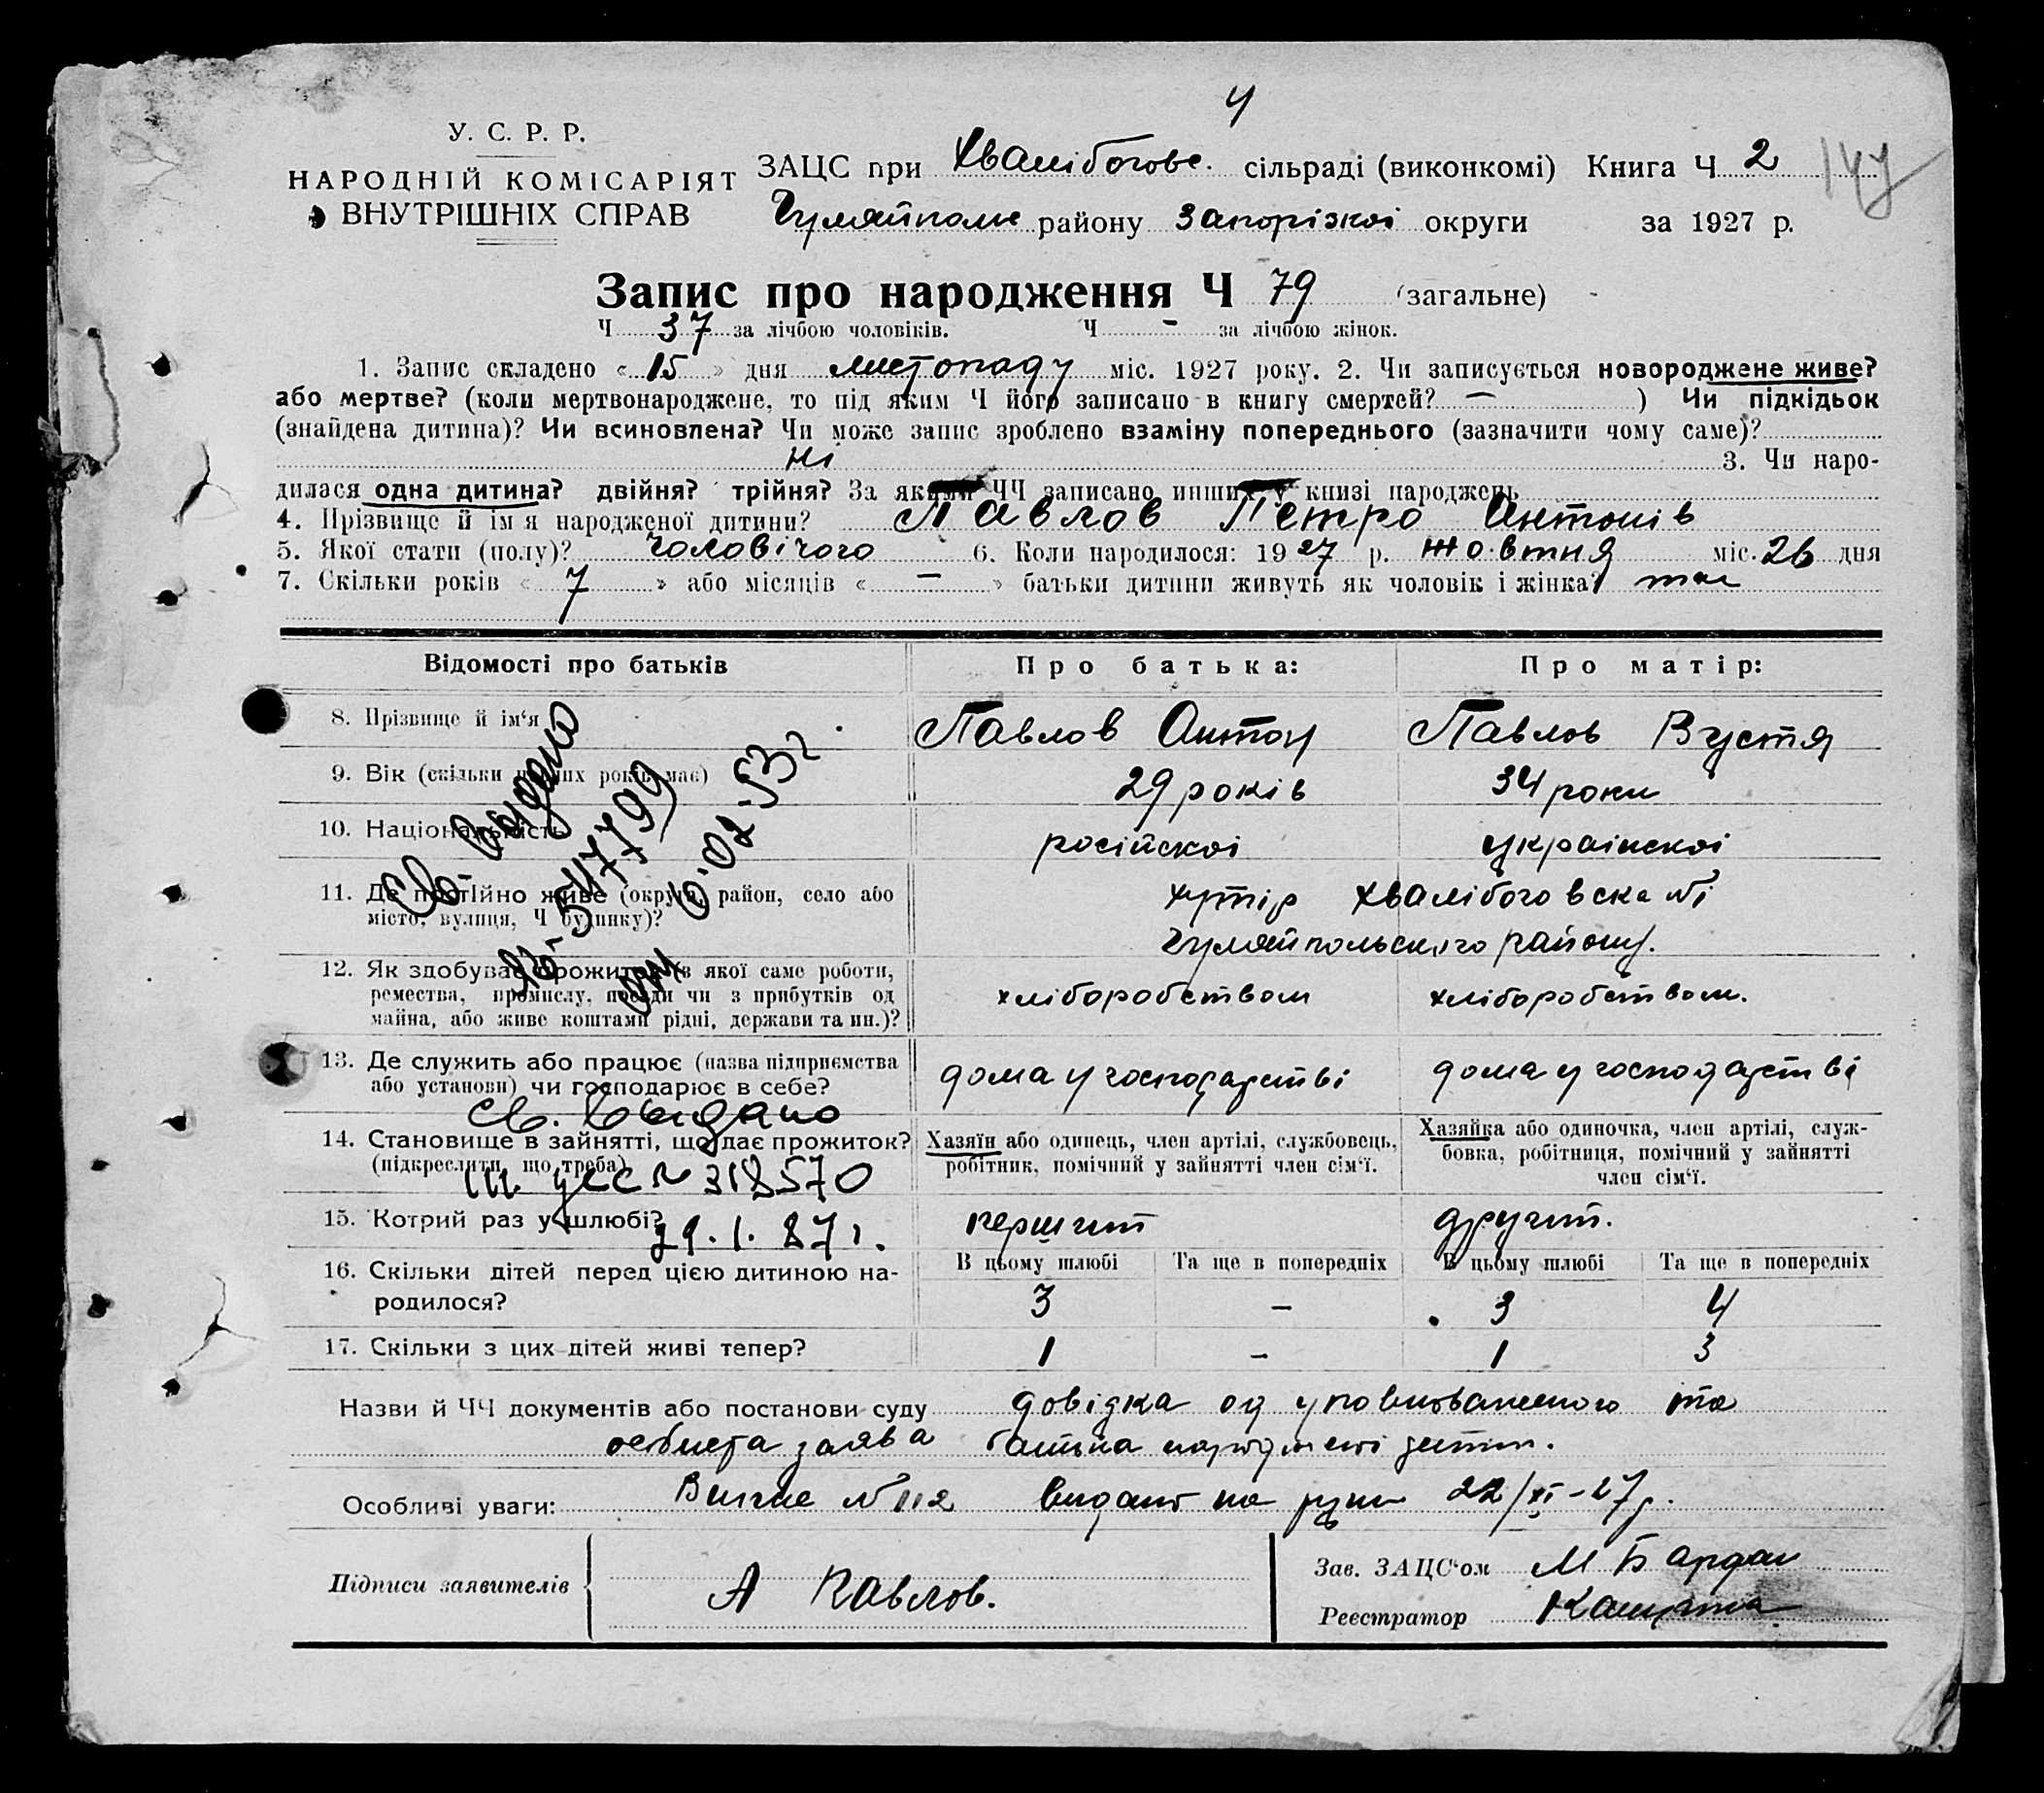 4
У. С. Р. Р.
НАРОДНІЙ КОМІСАРІЯТ
ВНУТРІШНІХ СПРАВ
ЗАЦС при Хвалібогове. сільраді (виконкомі) Книга Ч 2
147
Гуляйполе району Запорізкої округи за 1927 р.
Запис про народження Ч 79 (загальне)
Ч 37 за лічбою чоловіків. Ч - за лічбою жінок.
1. Запис складено « 15 » дня листопаду міс. 1927 року. 2. Чи записується новороджене живе?
або мертве? (коли мертвонароджене, то під яким Ч його записано в книгу смертей? — ) Чи підкідьок
(знайдена дитина)? Чи всиновлена? Чи може запис зроблено взаміну попереднього (зазначити чому саме)?
Ні 3. Чи наро-
дилася одна дитина? двійня? трійня? За якими ЧЧ записано инших у книзі народжень
4. Прізвище й ім я народженої дитини? Павлов Петро Антонів
5. Якої стати (полу)? чоловічого 6. Коли народилося: 1927 р. жовтня міс. 26 дня
7. Скільки років « 7 » або місяців « — » батьки дитини живуть як чоловік і жінка? так
Відомості про батьків Про батька: Про матір:
8. Прізвище й ім‘я Павлов Антон Павлов Вустя
9. Вік (скільки повних років має) 29 років 34 роки
10. Національність російскої украінскої
11. Де постійно живе (округа, район, село або
місто, вулиця, Ч будинку)?
хутір Хвалібоговска №1
Гуляйпольского району.
12. Як здобуває прожиток (з якої саме роботи,
ремества, промислу, посади чи з прибутків од
майна, або живе коштами рідні, держави та ин.)?
хліборобством хліборобством.
Св. выдано
ЯБ-547799
от 6.02-53г
13. Де служить або працює (назва підприємства
або установи) чи господарює в себе?
дома у господарстві дома у господарстві
св. выдано
14. Становище в зайнятті, що дає прожиток?
(підкреслити, що треба)
Хазяїн або одинець, член артілі, службовець,
робітник, помічний у зайнятті член сім‘ї.
Хазяйка або одиночка, член артілі, служ-
бовка, робітниця, помічний у зайнятті
член сім‘ї.
№ 318570
15. Котрий раз у шлюбі? першит другит.
29.1.87г.
16. Скільки дітей перед цією дитиною на-
родилося?
В цьому шлюбі Та ще в попередніх В цьому шлюбі Та ще в попередніх
3 - 3 4
17. Скільки з цих дітей живі тепер? 1 - 1 3
Назви й ЧЧ документів або постанови суду довідка од уповноваженого та
особиста заява батька народженої дитини.
Особливі уваги: Витяг №112 видано на руки 22/XI-27р.
Підписи заявителів А Павлов.
Зав. ЗАЦС‘ом М Бардак
Реєстратор